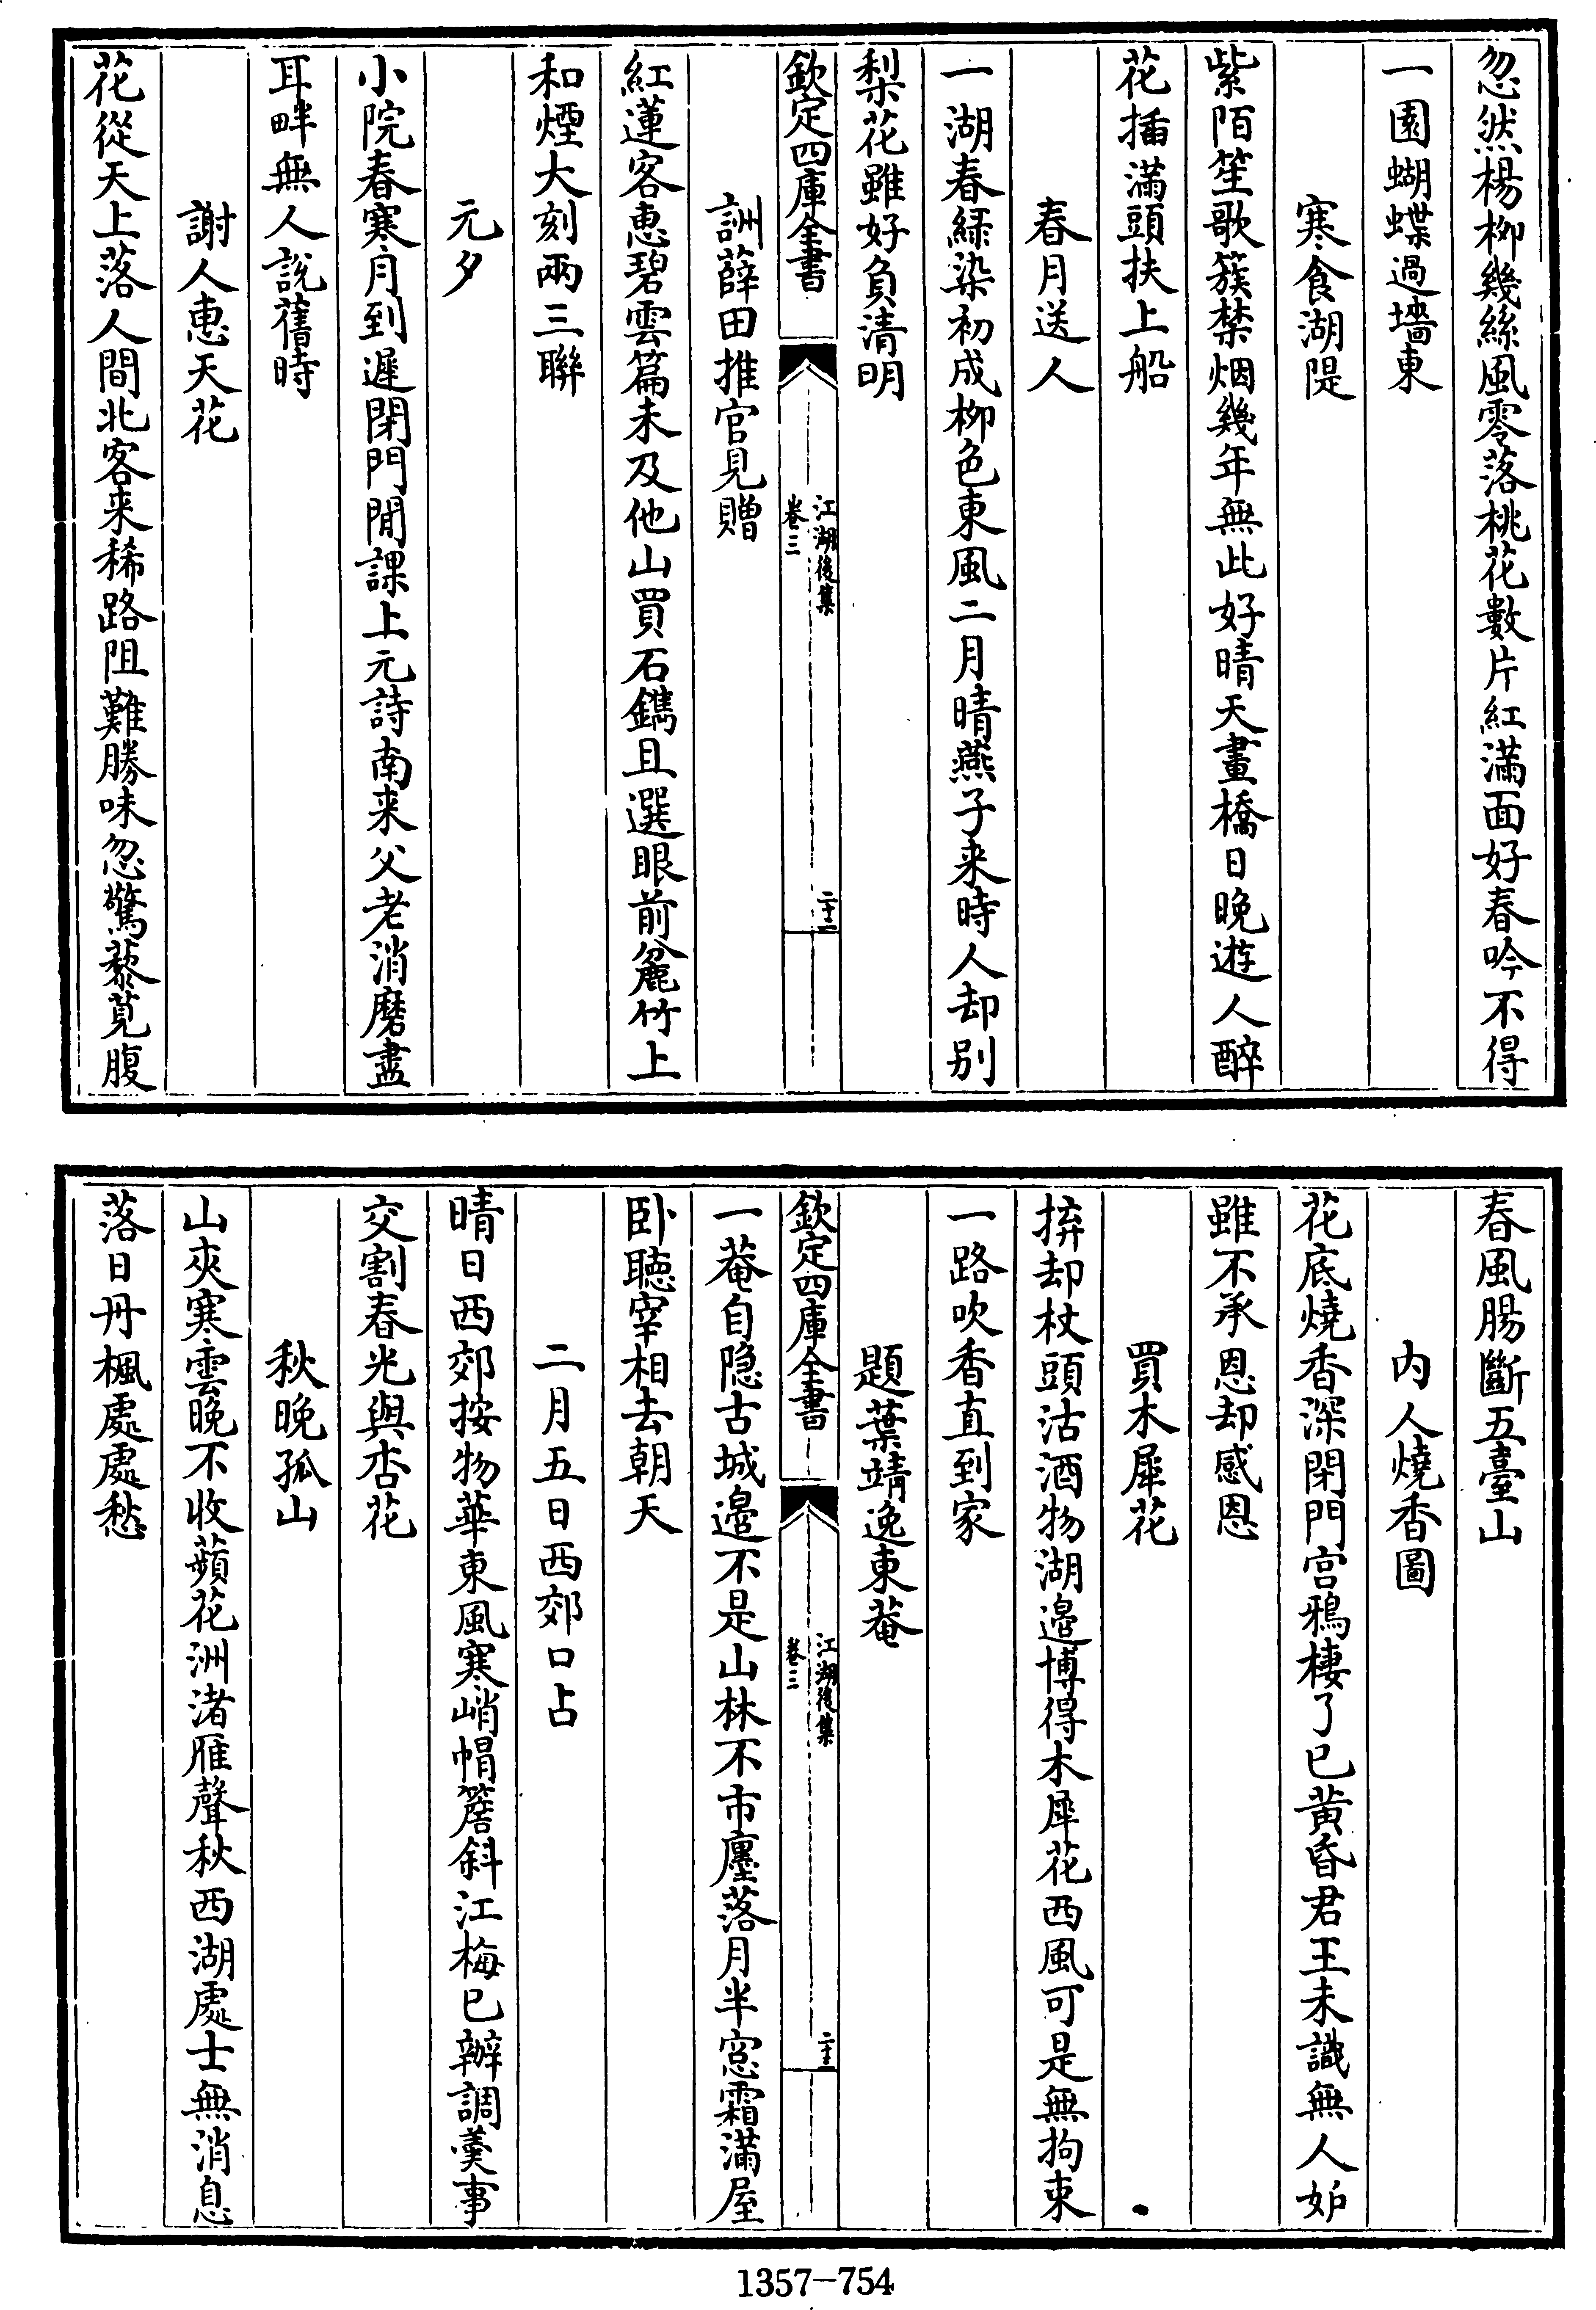 忽然楊柳幾絲風零落桃花數片紅滿面好春吟不得
一園蝴蝶過墻東
寒食湖隄
紫陌笙歌簇禁烟幾年無此好晴天畫橋日晚遊人醉
花插滿頭扶上船
春月送人
一湖春綠染初成柳色東風二月晴燕子来時人却别
梨花雖好負清明
欽定四庫全書
江湖後集
卷三
二十二
詶薛田推官見贈
紅蓮客惠碧雲篇未及他山買石鐫且選眼前麄竹上
和煙大刻兩三聯
元夕
小院春寒月到遲閉門閒課上元詩南来父老消磨盡
耳畔無人說舊時
謝人惠天花
花從天上落人間北客来稀路阻難勝味忽驚藜莧腹
春風腸斷五臺山
内人燒香圖
花底燒香深閉門宫鴉棲了已黄昏君王未識無人妒
雖不承恩却感恩
買木犀花
拚却杖頭沽酒物湖邉博得木犀花西風可是無拘束
一路吹香直到家
題葉靖逸東菴
欽定四庫全書
江湖後集
卷三
二十三
一菴自隐古城邉不是山林不市廛落月半窓霜滿屋
卧聽宰相去朝天
二月五日西郊口占
晴日西郊按物華東風寒峭帽簷斜江梅已辦調羮事
交割春光與杏花
秋晚孤山
山夾寒雲晚不收蘋花洲渚雁聲秋西湖處士無消息
落日丹楓處處愁
1357-754